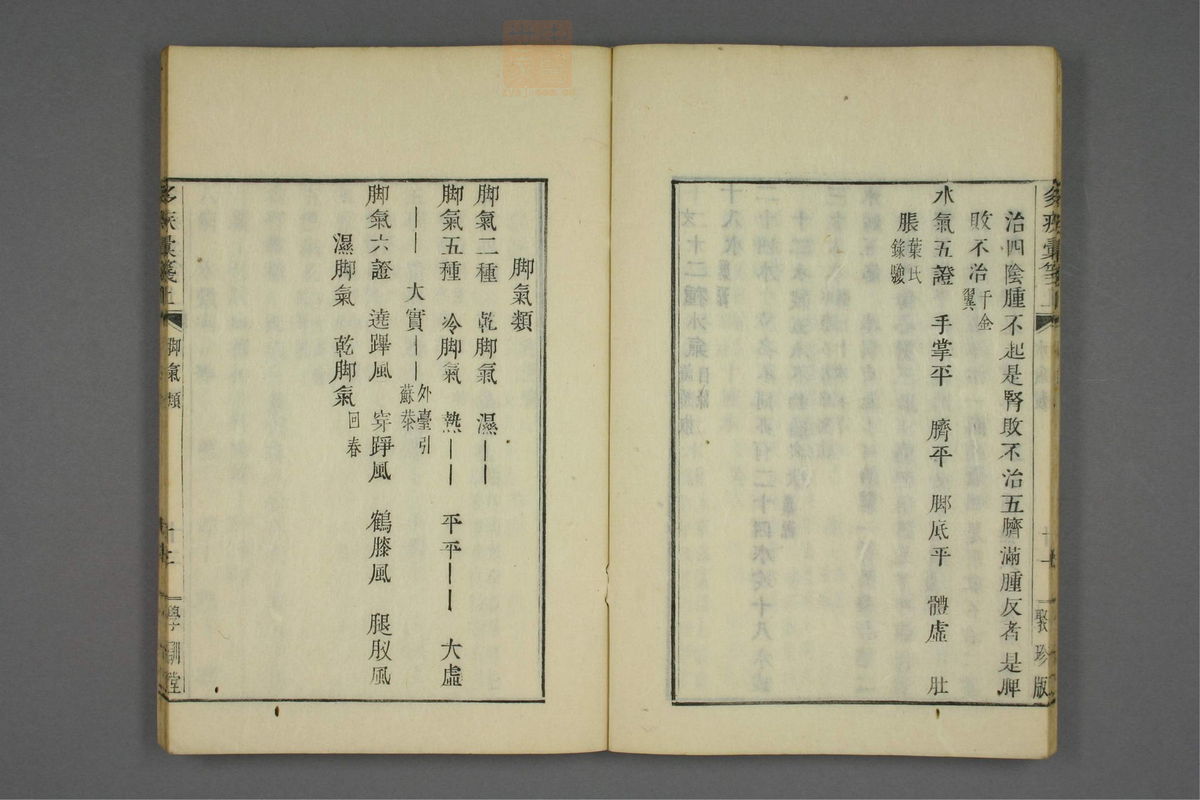 治四陰腫不起是腎敗不治五臍滿腫反者是脾
敗不治千金翼
水氣五證 手掌平 臍平 脚底平 體虛 肚
脹葉氏錄驗
十一
聚珍版
脚氣類
脚氣二種 乾脚氣 濕〡〡
脚氣五種 冷脚氣 熱〡〡 平平〡〡 大虛
〡〡 大實〡〡外臺引蘇恭
脚氣六證 遶踝風 穿踭風 鶴膝風 腿肞風
濕脚氣 乾脚氣回春
脚氣類
學訓堂